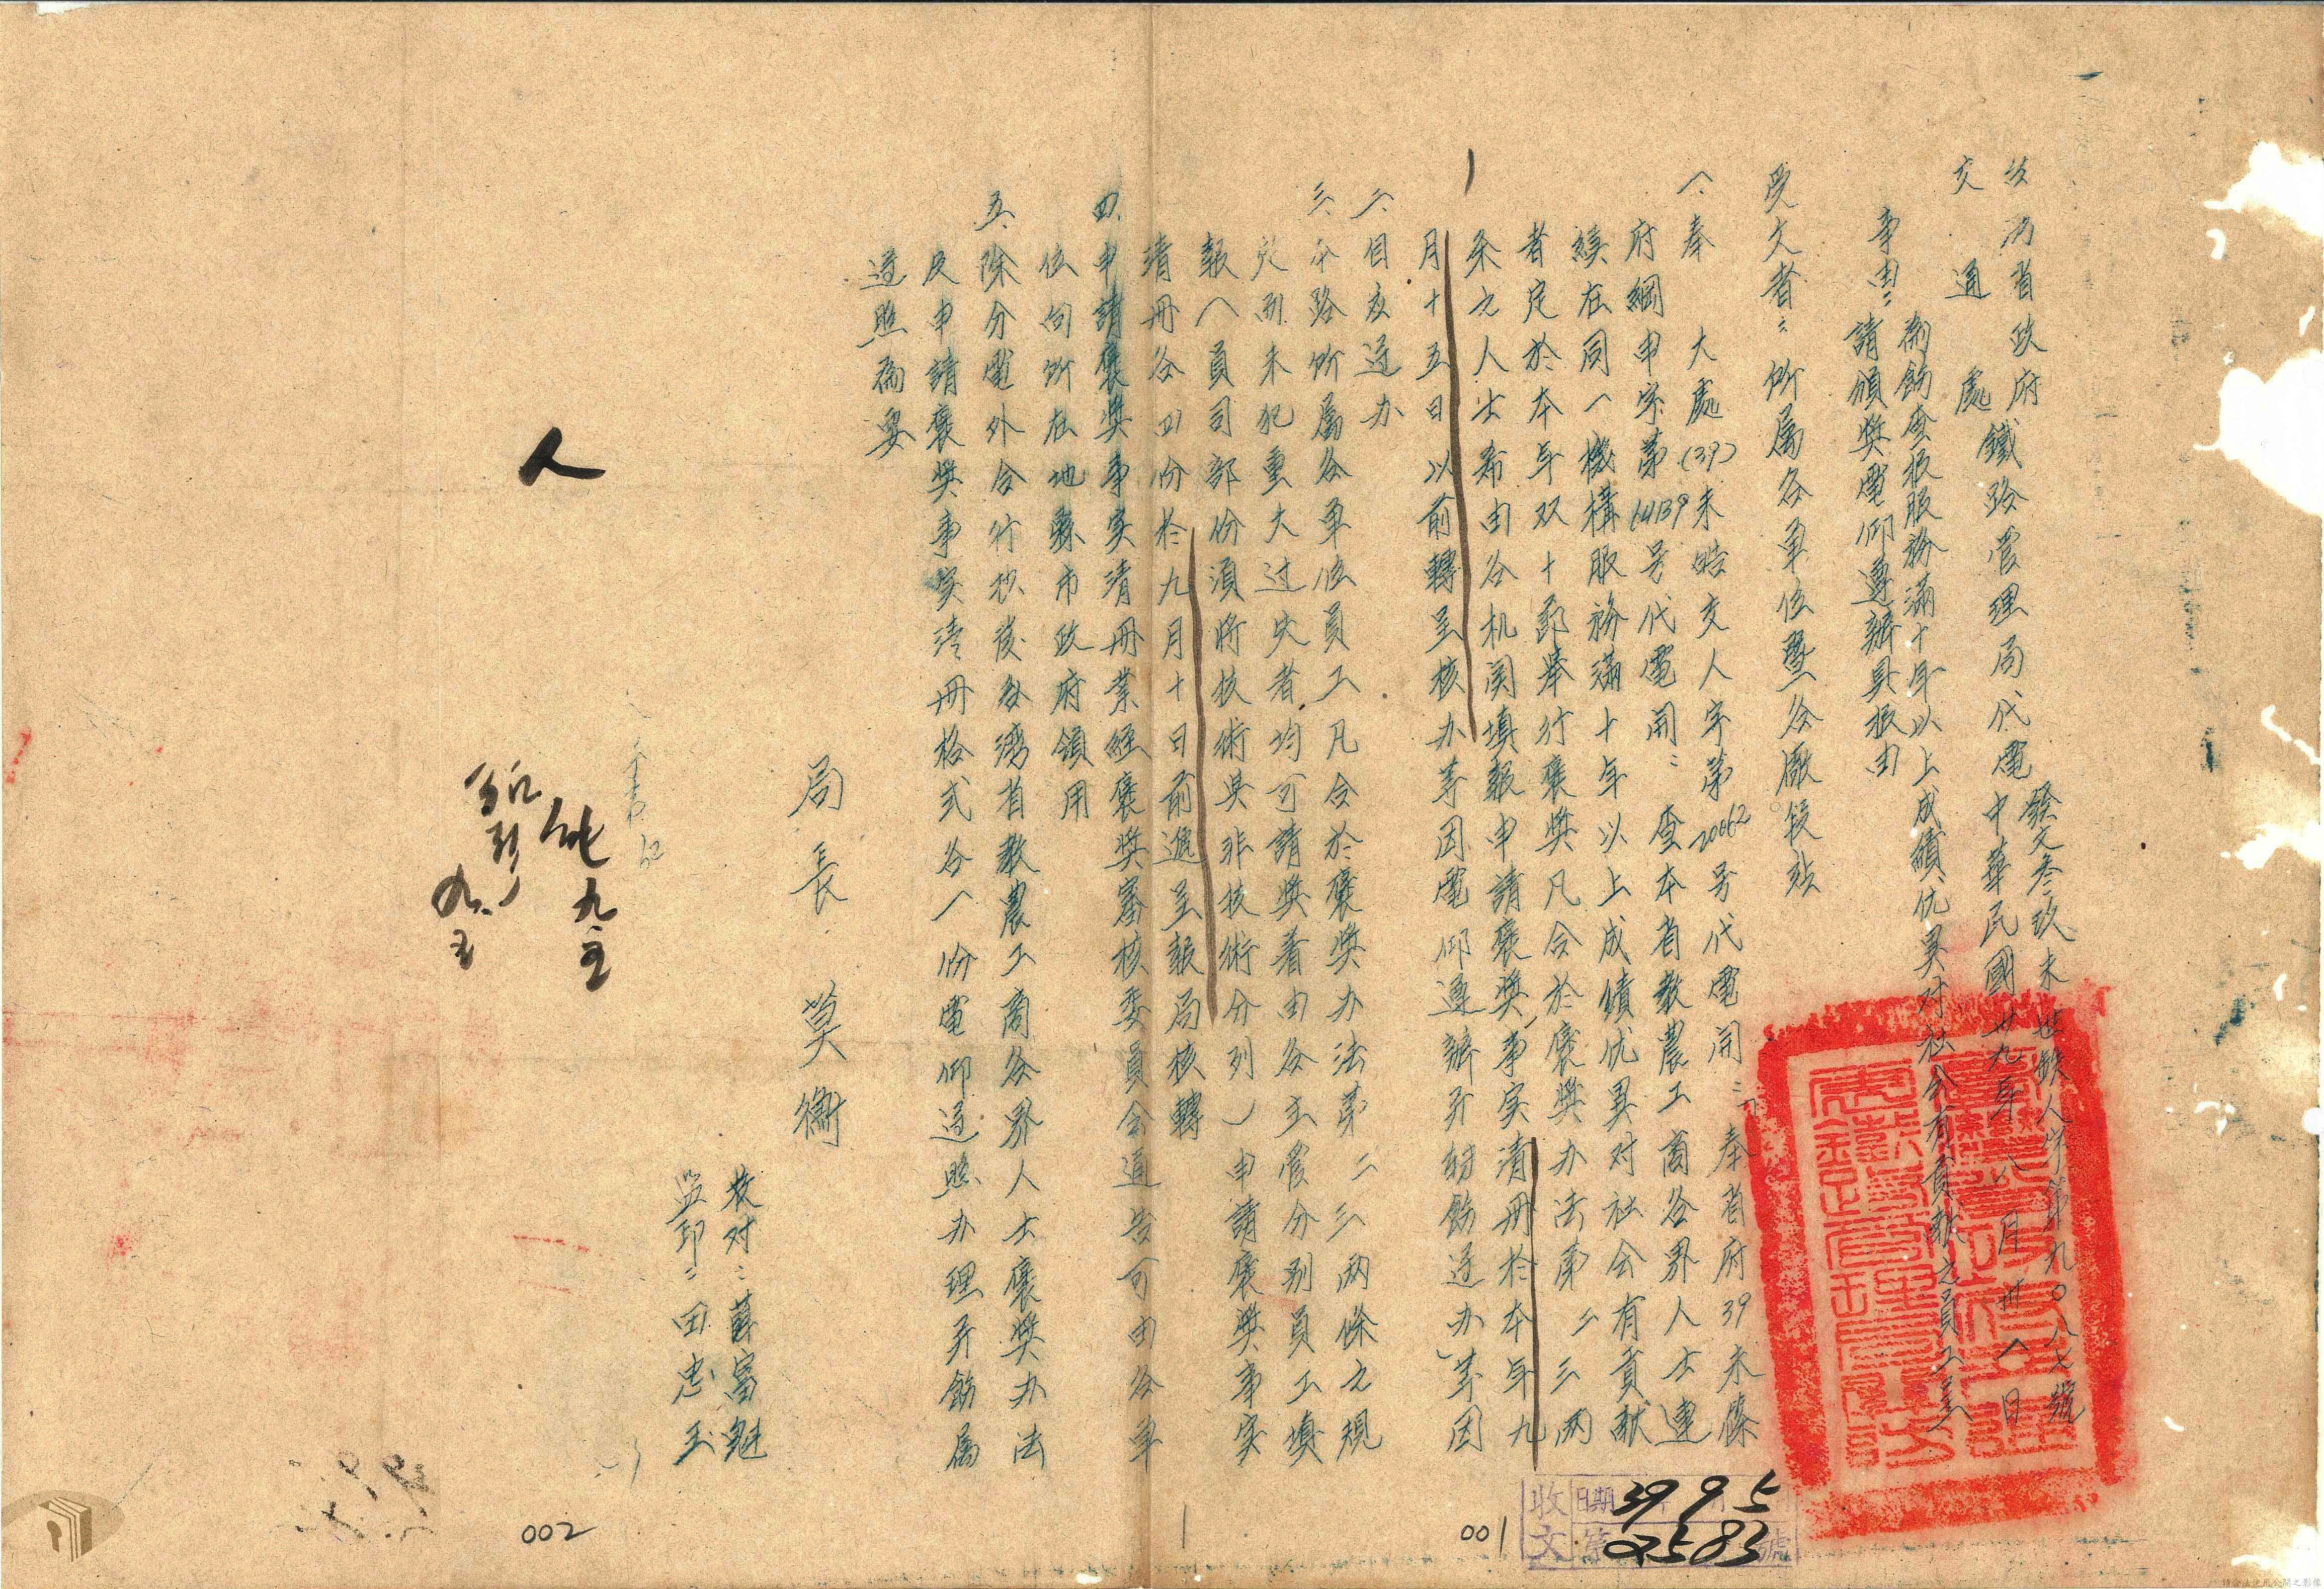 台湾省政府鐵路管理局代電
交通處
發文叁玖未世鉄人字第九〇八七號
中華民國卅九年八月卅一日
事由：為飭查报服務滿十年以上成績优異对社会有貢献之員工呈
請頒奬電仰遵辦具报由
受文者：所属各單位暨各廠段站
一、奉 大處(39)未皓交人字第20062号代電開：「奉省府39未篠
府綱甲字第64139号代電開：查本省教農工商各界人士連
續在同一機構服務滿十年以上成績优異对社会有貢献
者定於本年双十節舉行褒奬凡合於褒奬办法第二三两
条之人士希由各机関填報申請褒奬事实清冊於本年九
月十五日以前轉呈核办等因電仰遵辦并轉飭遵办」等因
二、自应遵办
三、本路所属各單位員工凡合於褒奬办法第二三两條之規
定而未犯重大过失者均可請奬着由各主管分别員工填
報（員司部份須将技術與非技術分列）申請褒奬事实
清冊各四份於九月十日前逕呈報局核轉
四、申請褒奬事实清冊業經褒奬審核委員会通告可由各单
位向所在地縣市政府領用
五、除分電外合行抄發台湾省教農工商各界人士褒奬办法
及申請褒奬事实清冊格式各一份電仰遵照办理并飭属
遵照為要
局長 莫衡
校对：薛富魁
監印：田忠玉
人
九.五
九.五
收文 日期 39 9 5
第 2583 號
001
002